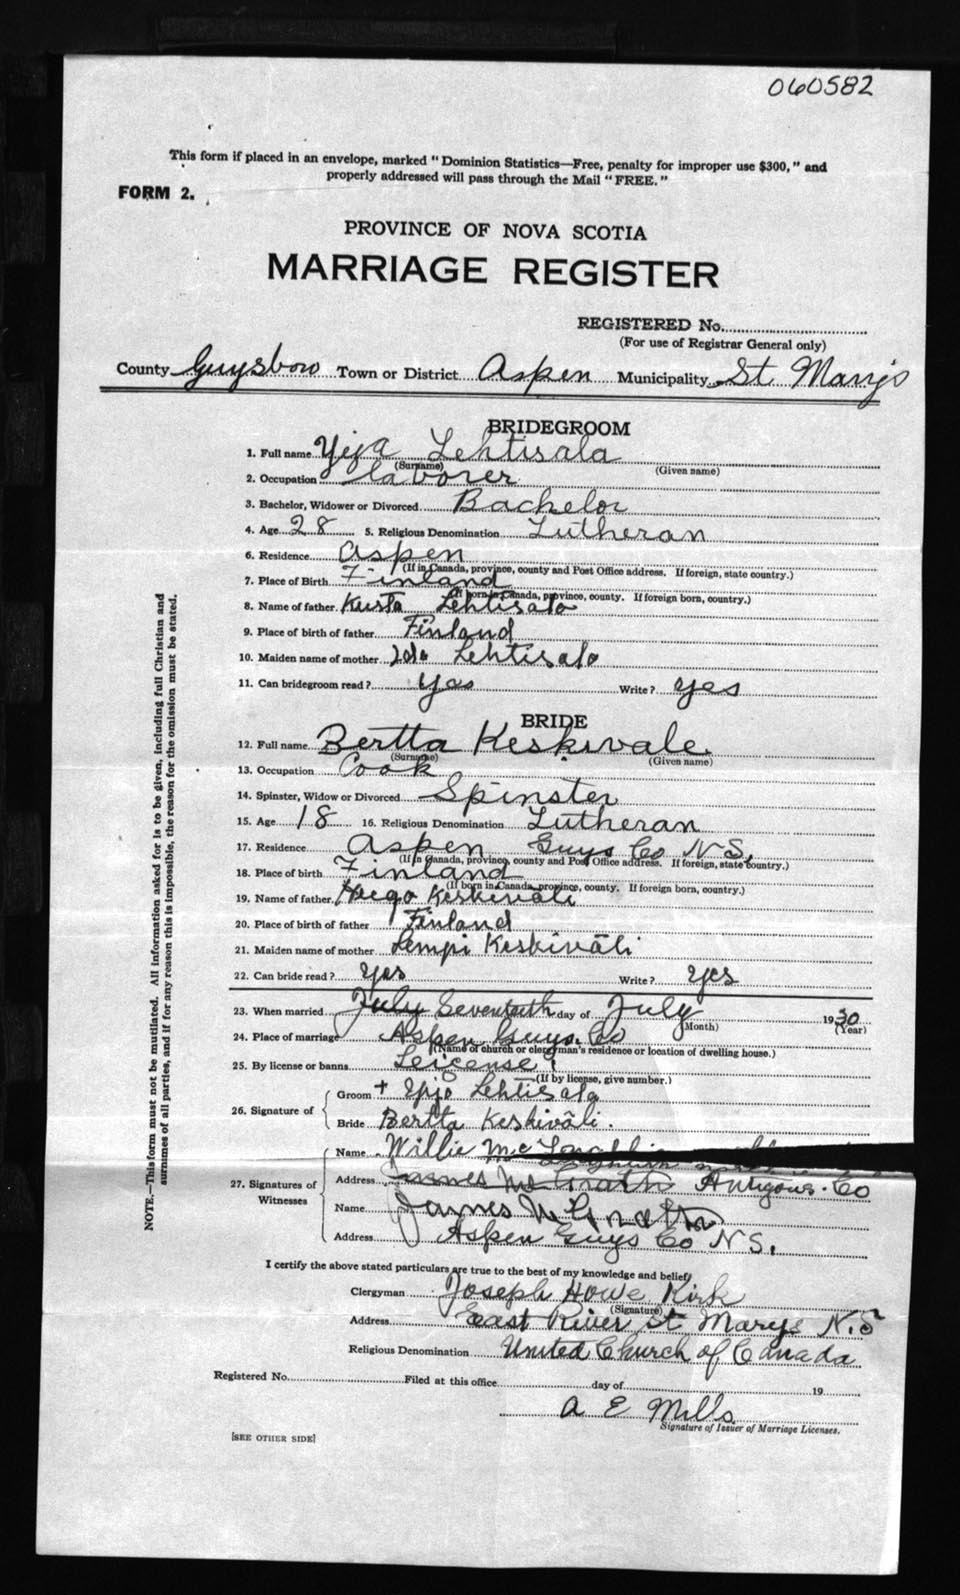 060582
This form if placed in an envelope, marked "Dominion Statistics—Free, penalty for improper use $300," and
properly addressed will pass through the Mail "FREE."
FORM 2.
PROVINCE OF NOVA SCOTIA
MARRIAGE REGISTER
REGISTERED No.
(For use of Registrar General only)
County Guysboro Town or District Aspen Municipality St Marys
BRIDEGROOM
1. Full name Lehtisala
(Surname) (Given name)
2. Occupation laborer
3. Bachelor, Widower or Divorced Bachelor
4. Age 28 5. Religious Denomination Lutheran
6. Residence Aspen
(If in Canada, province, county and Post Office address. If foreign, state country.)
7. Place of Birth Finland
(If born in Canada, province, county. If foreign born, country.)
8. Name of father Kusta Lehtisalo
9. Place of birth of father Finland
10. Maiden name of mother Ida Lehtisalo
11. Can bridegroom read? Yes Write? yes
BRIDE
12. Full name Bertta Keskivale
(Surname) (Given name)
13. Occupation Cook
14. Spinster, Widow or Divorced Spinster
15. Age 18 16. Religious Denomination Lutheran
17. Residence Aspen Guys Co N S.
(If in Canada, province, county and Post Office address. If foreign, state country.)
18. Place of birth Finland
(If born in Canada, province, county. If foreign born, country.)
19. Name of father Hugo Keskiväli
20. Place of birth of father Finland
21. Maiden name of mother Lempi Keskiväli
22. Can bride read? Yes Write? Yes
23. When married July day of July 1930
(Month) (Year)
24. Place of marriage Aspen Guys. Co
(Name of church or clergyman's residence or location of dwelling house.)
25. By license or banns License
(If by license, give number.)
26. Signature of Groom + Lehtisala
Bride Bertta Keskiväli.
27. Signatures of Witnesses
Name Willie
Address James McGrath Antigous. Co
Name James McGrath
Address Aspen Guys Co N S.
I certify the above stated particulars are true to the best of my knowledge and belief
Clergyman Joseph Howe Kirk
(Signature)
Address East River St Marys N.S
Religious Denomination United Church of Canada
Registered No. Filed at this office day of 19
A E Mills
Signature of Issuer of Marriage Licenses.
[SEE OTHER SIDE]
NOTE.—This form must not be mutilated. All information asked for is to be given, including full Christian and
surnames of all parties, and if for any reason this is impossible, the reason for the omission must be stated.